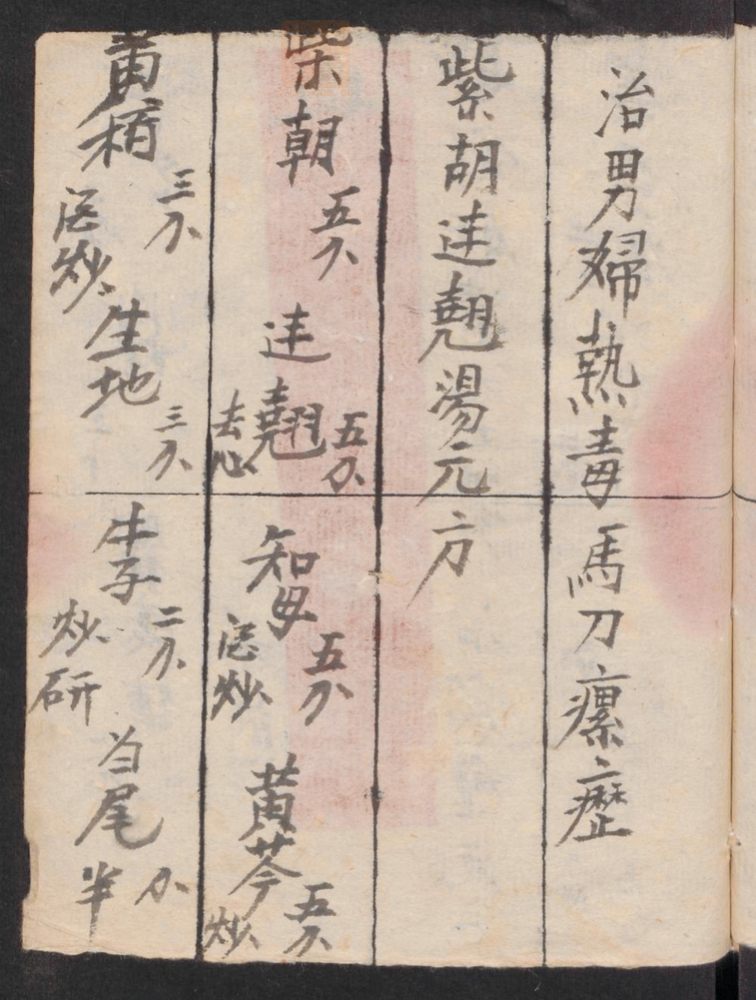 治男婦熱毒馬刀瘰癧
紫胡連翹湯元方
柴朝五分 連翹五分去心 知母五分酒炒 黃芩五分炒
黃栢三分酒炒 生地三分 牛子二分炒研 当尾半分